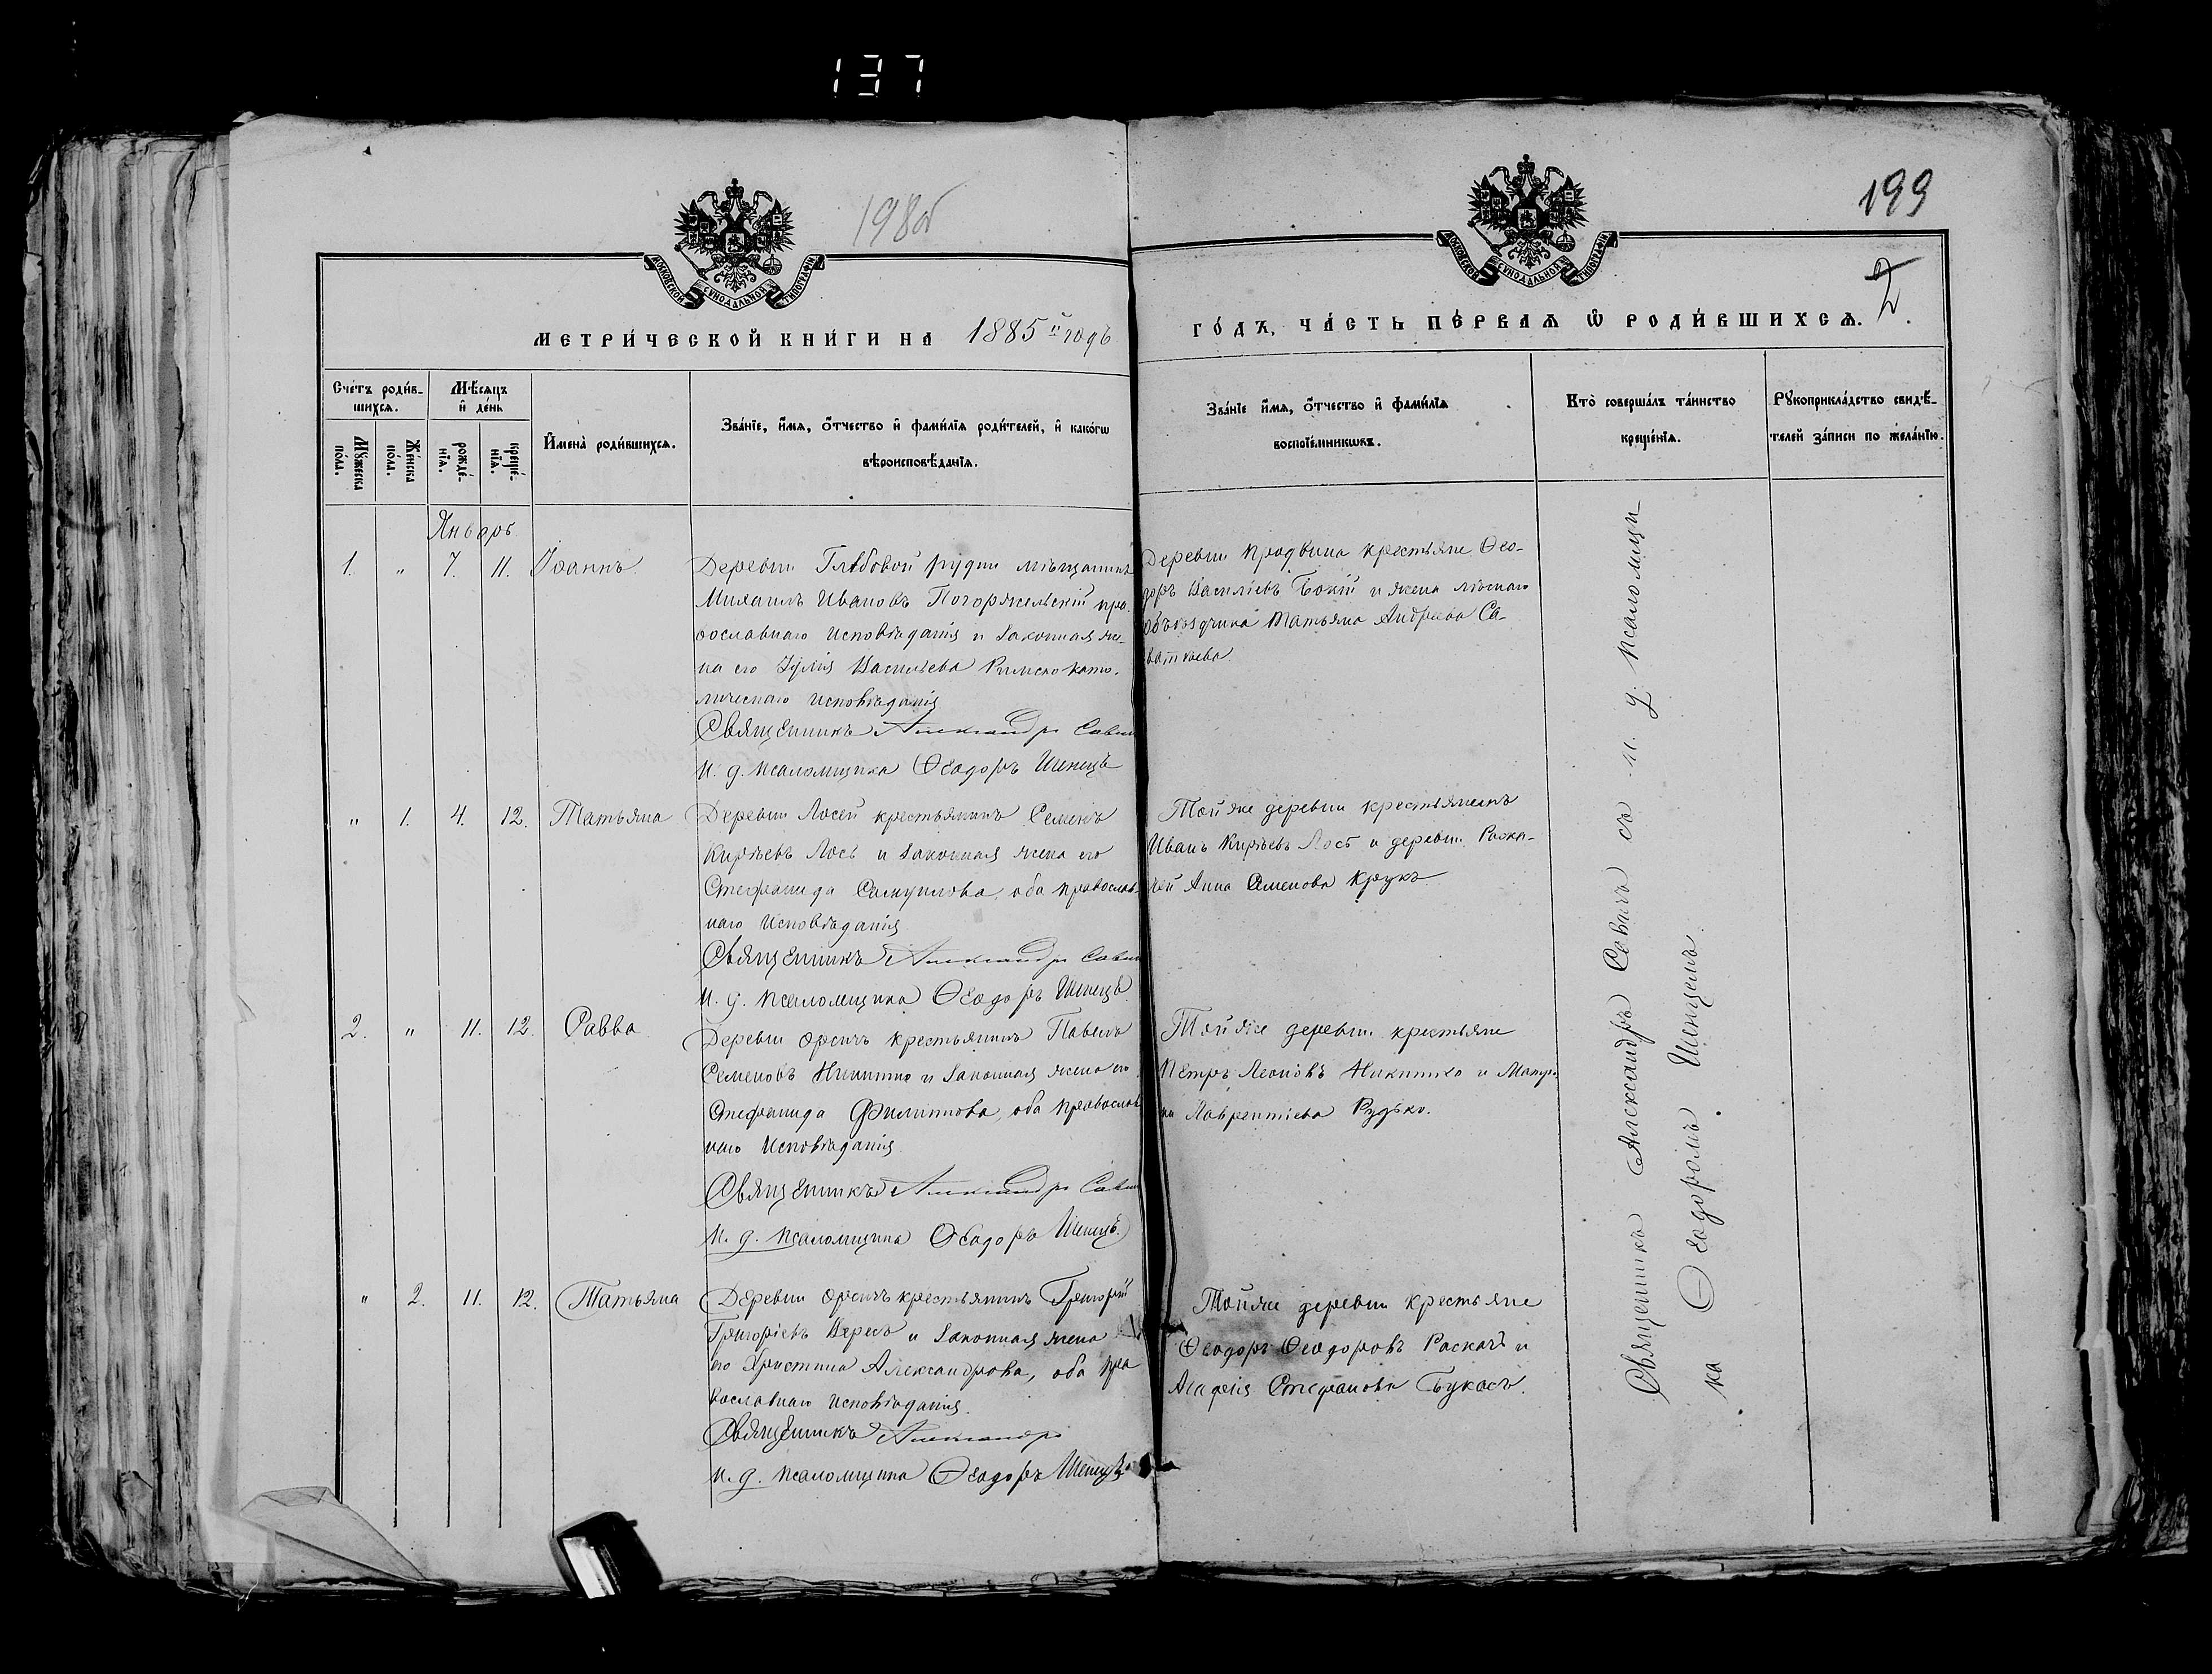 137
198об
199
2.
МОСКОВСКОЙ СѴНОДАЛЬНОЙ ТИПОГРАФІИ
МОСКОВСКОЙ СѴНОДАЛЬНОЙ ТИПОГРАФІИ
МЕТРИ́ЧЕСКОЙ КНИ́ГИ НА 1885й годъ
ГО́ДЪ, ЧА́СТЬ ПЕ́РВАѦ Ѿ РОДИ́ВШИХСѦ.
Сче́тъ роди́в-
шихсѧ.
Мꙋ́жеска
по́ла.
Же́нска
по́ла.
Мѣ́сѧцъ
и҆ де́нь
рожде́-
нїѧ.
креще́-
нїѧ.
И҆мена̀ роди́вшихсѧ.
Зва́нїе, и҆́мѧ, ѻ҆́тчество и҆ фами́лїѧ роди́телей, и҆ како́гѡ
вѣроисповѣ́данїѧ.
Зва́нїе и҆́мѧ, ѻ҆́тчество и҆ фами́лїѧ
воспрїе́мникѡвъ.
Кто̀ соверша́лъ та́инство
креще́нїѧ.
Рꙋкоприкла́дство свидѣ́-
телей за́писи по жела́нїю.
Январь
1. " 7. 11. Іоаннъ
Деревни Глѣбовой рудни мѣщанинъ
Михаилъ Ивановъ Погоржельскій пра-
вославнаго исповѣданія и законная же-
на его Іулія Васильева Римско като-
лическаго исповѣданія
Священникъ Александръ Савич
И. д. псаломщика Ѳеодоръ Шенецъ
Деревни крестьяне Ѳео-
доръ Василіевъ Бокій и жена лѣснаго
объѣздчика Татьяна Андреева Са-
" 1. 4. 12. Татьяна
Деревни Лосей крестьянинъ Семенъ
Кирѣевъ Лось и законная жена его
Стефанида Самуилова, оба православ-
наго исповѣданія
Священникъ Александръ Савич
И. д. псаломщика Ѳеодоръ Шенецъ
Той же деревни крестьянинъ
Иванъ Кирѣевъ Лось и деревни Раска-
чей Анна Семенова Крукъ
2. " 11. 12. Савва
Деревни Оресичъ крестьянинъ Павелъ
Семеновъ Никитко и законная жена его
Стефанида Филиппова, оба православ
наго исповѣданія
Священникъ Александръ Савич
И. д. псаломщика Ѳеодоръ Шенецъ
Той же деревни крестьяне
Петръ Леоновъ Никитко и Матро-
на Лаврентіева Рудько.
" 2. 11. 12. Татьяна
Деревни Оресичъ крестьянинъ Григорій
Григоріевъ Вересъ и законная жена
его Христина Александрова, оба пра
вославнаго исповѣданія.
Священникъ Александръ
И. д. псаломщика Ѳеодоръ Шенецъ
Той же деревни крестьяне
Ѳеодоръ Ѳеодоровъ Раскачъ и
Агафія Стефанова Букасъ.
Священникъ Александръ Савичъ съ и. д. псаломщи
ка Ѳеодоромъ Шенцемъ.